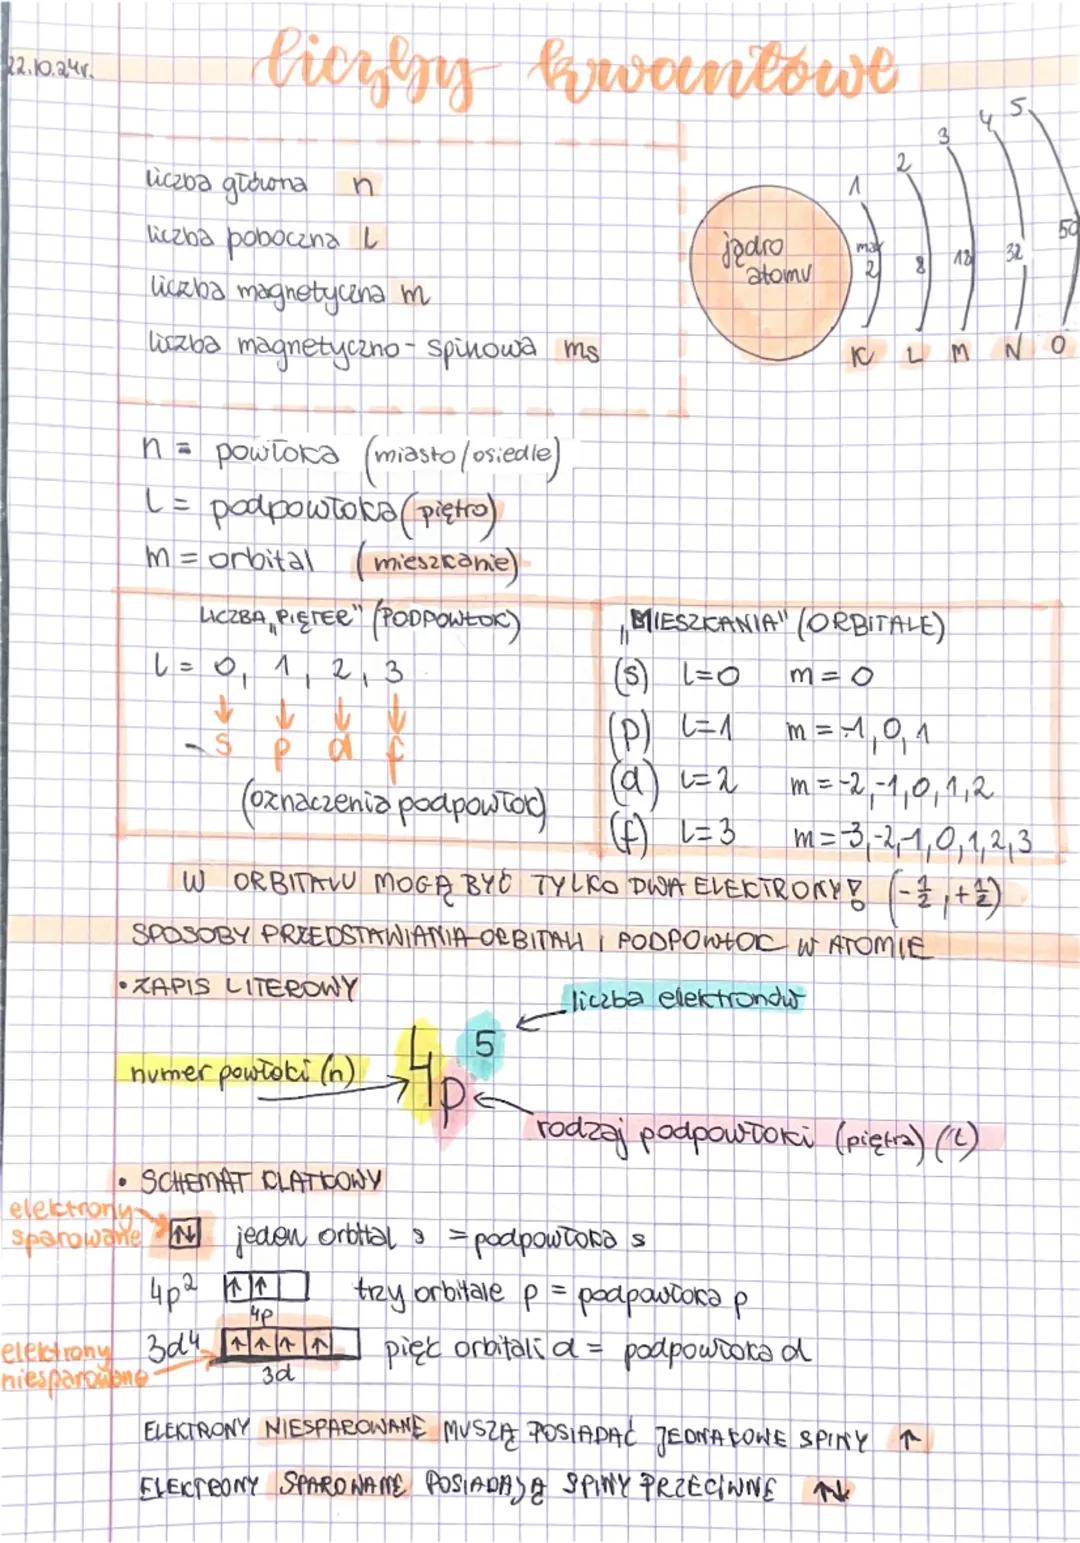 22.10.24r.
liczby kwantowe
liczba główna n
liczba poboczna l
liczba magnetyczna m
liczba magnetyczno-spinowa ms
jądro
atomu
1 2 3 4 5
max
2 8 18 32 50
K L M N O
n = powłoka (miasto/osiedle)
l = podpowłoka (piętro)
m = orbital (mieszkanie)
LICZBA „PIĘTER" (PODPOWŁOK)
l = 0, 1, 2, 3
↓ ↓ ↓ ↓
s p d f
(oznaczenia podpowłok)
„MIESZKANIA" (ORBITALE)
(s) l=0 m = 0
(p) l=1 m = -1, 0, 1
(d) l=2 m = -2, -1, 0, 1, 2
(f) l=3 m = -3, -2, -1, 0, 1, 2, 3
W ORBITALU MOGĄ BYĆ TYLKO DWA ELEKTRONY! (-½, +½)
SPOSOBY PRZEDSTAWIANIA ORBITALI I PODPOWŁOK W ATOMIE
• ZAPIS LITEROWY
liczba elektronów
4p⁵
numer powłoki (n)
rodzaj podpowłoki (piętra) (l)
• SCHEMAT KLATKOWY
elektrony
sparowane ↑↓ jeden orbital s = podpowłoka s
4p² ↑ ↑ trzy orbitale p = podpowłoka p
4p
elektrony
niesparowane
3d⁴ ↑ ↑ ↑ ↑ pięć orbitali d = podpowłoka d
3d
ELEKTRONY NIESPAROWANE MUSZĄ POSIADAĆ JEDNAKOWE SPINY ↑
ELEKTRONY SPAROWANE POSIADAJĄ SPINY PRZECIWNE ↑↓